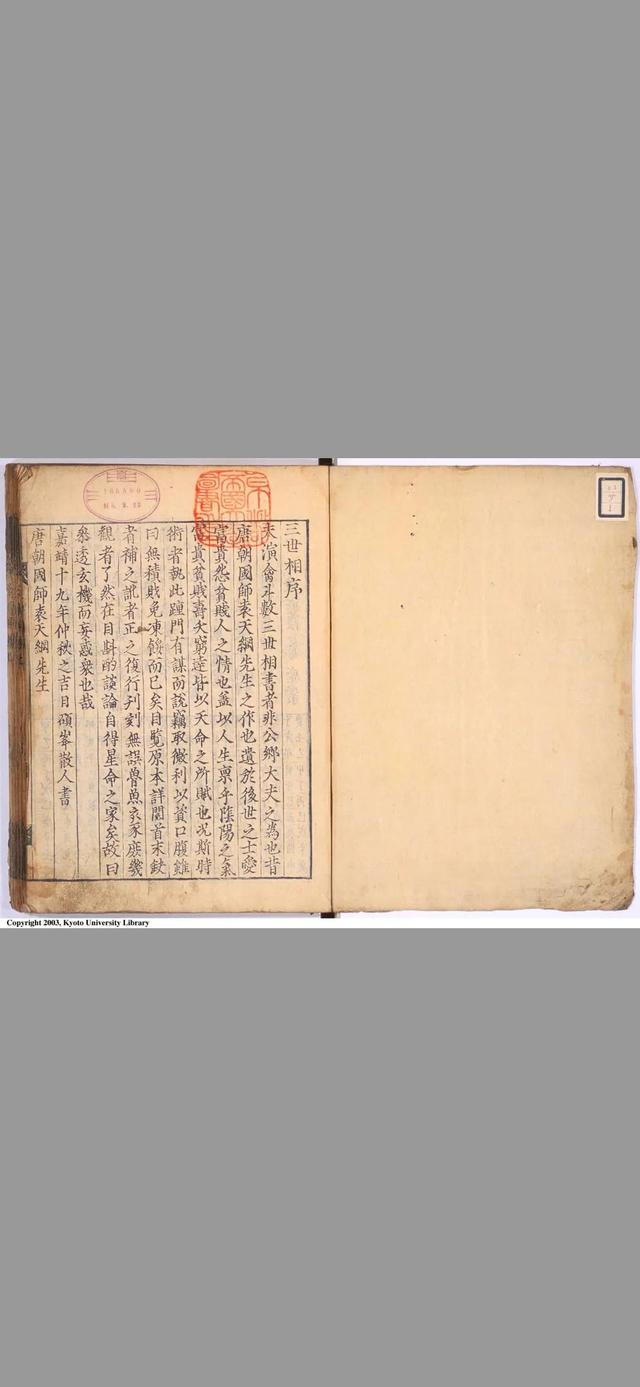 三世相序
夫演禽斗數三世相書者非公鄉大夫之為也昔
唐朝國師袁天綱先生之作也遺於後世之士愛
富貴怨貧賤人之情也蓋以人生禀乎陰陽之氣
富貴貧賤壽夭窮達皆以天命之所賦也况斯時
術者執此踵門有謀而說竊取微利以資口腹雖
曰無積賎免凍餒而已矣目覽原本詳閱首末缺
者補之訛者正之復行刊刻無誤魯魚亥豕庶幾
觀者了然在目斟酌談論自得星命之家矣故曰
叅透玄機而妄惑衆也哉
嘉靖十九年仲秋之吉日碩峯散人書
唐朝國師袁天綱先生
Copyright 2003, Kyoto University Library